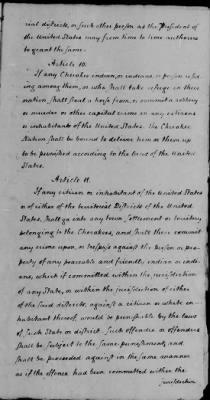 rial districts, or such other person as the President of
the United States may from time to time authorize
to grant the same.
Article 10.
If any Cherokee indian, or indians, or person resid-
ing among them, or who shall take refuge in their
nation, shall steal a horse from, or commit a robbery
or murder or other capital crime on any citizens
or inhabitants of the United States, the Cherokee
Nation shall be bound to deliver him or them up
to be punished according to the laws of the United
States.
Article 11.
If any citizen or inhabitant of the United States
or of either of the territorial Districts of the United
States, shall go into any town, settlement or territory
belonging to the Cherokees, and shall there commit
any crime upon, or trespass against the person or pro-
perty of any peaceable and friendly indian or indi-
ans, which if committed within the jurisdiction
of any State, or within the jurisdiction of either
of the said districts, against a citizen or white in-
habitant thereof, would be punishable by the laws
of such State or district, such offender or offenders
shall be subject to the same punishment, and
shall be proceeded against in the same manner
as if the offence had been committed within the
jurisdiction